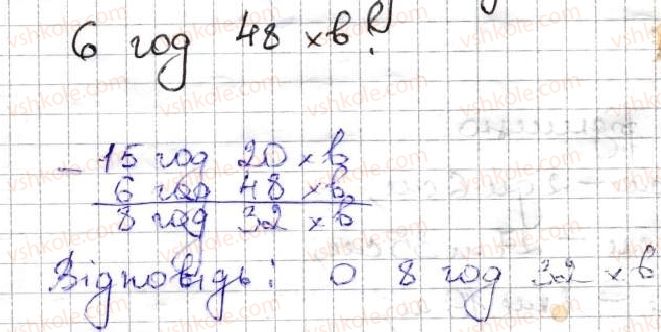 6 год 48 хв?
- 15 год 20 хв
6 год 48 хв
8 год 32 хв
Відповідь: о 8 год 32 хв